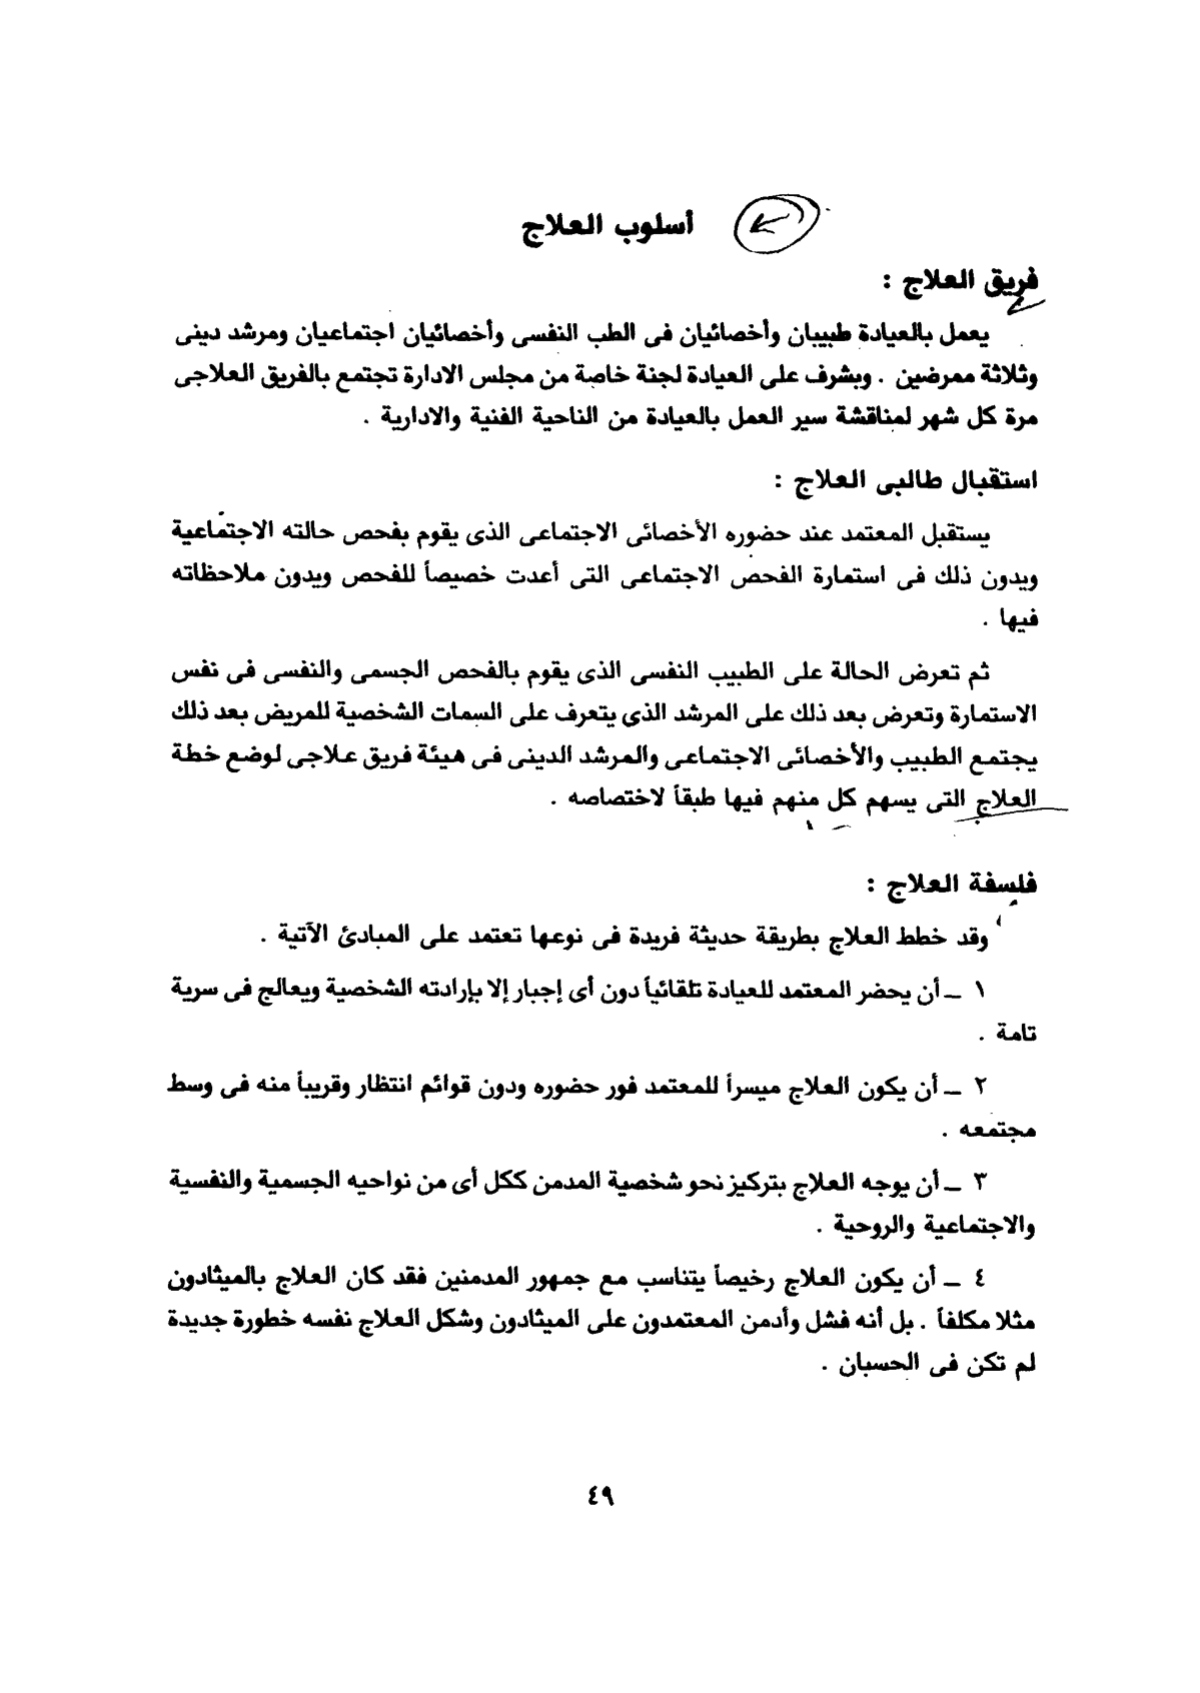 أسلوب العلاج
فريق العلاج :
يعمل بالعيادة طبيبان وأخصائيان فى الطب النفسى وأخصائيان اجتماعيان ومرشد دينى
وثلاثة ممرضين . وبشرف على العيادة لجنة خاصة من مجلس الادارة تجتمع بالفريق العلاجى
مرة كل شهر لمناقشة سير العمل بالعيادة من الناحية الفنية والادارية .
استقبال طالبى العلاج :
يستقبل المعتمد عند حضوره الأخصائى الاجتماعى الذى يقوم بفحص حالته الاجتماعية
ويدون ذلك فى استمارة الفحص الاجتماعى التى أعدت خصيصاً للفحص ويدون ملاحظاته
فيها .
ثم تعرض الحالة على الطبيب النفسى الذى يقوم بالفحص الجسمى والنفسى فى نفس
الاستمارة وتعرض بعد ذلك على المرشد الذى يتعرف على السمات الشخصية للمريض بعد ذلك
يجتمع الطبيب والأخصائى الاجتماعى والمرشد الدينى فى هيئة فريق علاجى لوضع خطة
العلاج التى يسهم كل منهم فيها طبقاً لاختصاصه .
فلسفة العلاج :
وقد خطط العلاج بطريقة حديثة فريدة فى نوعها تعتمد على المبادئ الآتية .
١ ــ أن يحضر المعتمد للعيادة تلقائياً دون أى إجبار إلا بإرادته الشخصية ويعالج فى سرية
تامة .
٢ ــ أن يكون العلاج ميسراً للمعتمد فور حضوره ودون قوائم انتظار وقريباً منه فى وسط
مجتمعه .
٣ ــ أن يوجه العلاج بتركيز نحو شخصية المدمن ككل أى من نواحيه الجسمية والنفسية
والاجتماعية والروحية .
٤ ــ أن يكون العلاج رخيصاً يتناسب مع جمهور المدمنين فقد كان العلاج بالميثادون
مثلا مكلفاً . بل أنه فشل وأدمن المعتمدون على الميثادون وشكل العلاج نفسه خطورة جديدة
لم تكن فى الحسبان .
٤٩